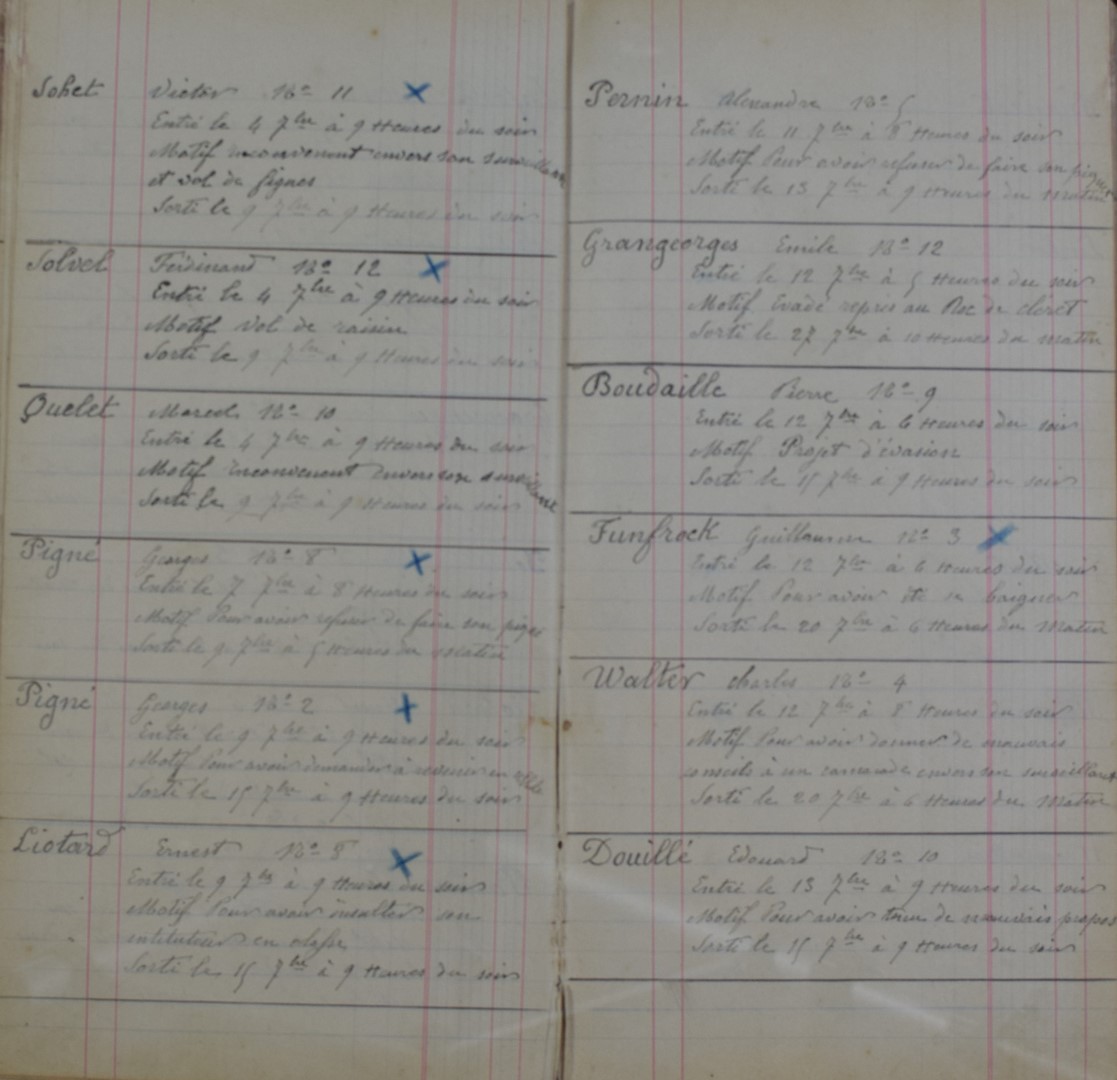 Sohet Victor Nº 11
Entré le 4 7bre à 9 Heures du soir
Motif inconvenent envers son surveillant
et vol de figues
Sorti le 9 7bre à 9 Heures du soir
Solvel Ferdinand Nº 12
Entré le 4 7bre à 9 Heures du soir
Motif Vol de raisin
Sorti le 9 7bre à 9 Heures du soir
Quelet Marcel Nº 10
Entré le 4 7bre à 9 Heures du soir
Motif inconvenent envers son surveillant
Sorti le 9 7bre à 9 Heures du soir
Pigné Georges Nº 8
Entré le 7 7bre à 8 Heures du soir
Motif Pour avoir refuser de faire son
Sorti le 9 7bre à 5 Heures du matin
Pigné Georges Nº 2
Entré le 9 7bre à 9 Heures du soir
Motif Pour avoir demander à revenir en
Sorti le 15 7bre à 9 Heures du soir
Liotard Ernest Nº 8
Entré le 9 7bre à 9 Heures du soir
Motif Pour avoir insulter son
instituteur en classe
Sorti le 15 7bre à 9 Heures du soir
Pernin Alexandre Nº 5
Entré le 11 7bre à 8 Heures du soir
Motif Pour avoir refuser de faire son
Sorti le 13 7bre à 9 Heures du matin
Grangeorges Emile Nº 12
Entré le 12 7bre à 5 Heures du soir
Motif Evadé repris au
Sorti le 27 7bre à 10 Heures du matin
Boudaille Pierre Nº 9
Entré le 12 7bre à 6 Heures du soir
Motif Projet d'évasion
Sorti le 15 7bre à 9 Heures du soir
Funfrock Guillaume Nº 3
Entré le 12 7bre à 6 Heures du soir
Motif Pour avoir été se baigner
Sorti le 20 7bre à 6 Heures du matin
Walter Charles Nº 4
Entré le 12 7bre à 8 Heures du soir
Motif Pour avoir donner de mauvais
conseils à un camarade envers son surveillant
Sorti le 20 7bre à 6 Heures du matin
Douillé Edouard Nº 10
Entré le 13 7bre à 9 Heures du soir
Motif Pour avoir tenu de mauvais propos
Sorti le 15 7bre à 9 Heures du soir